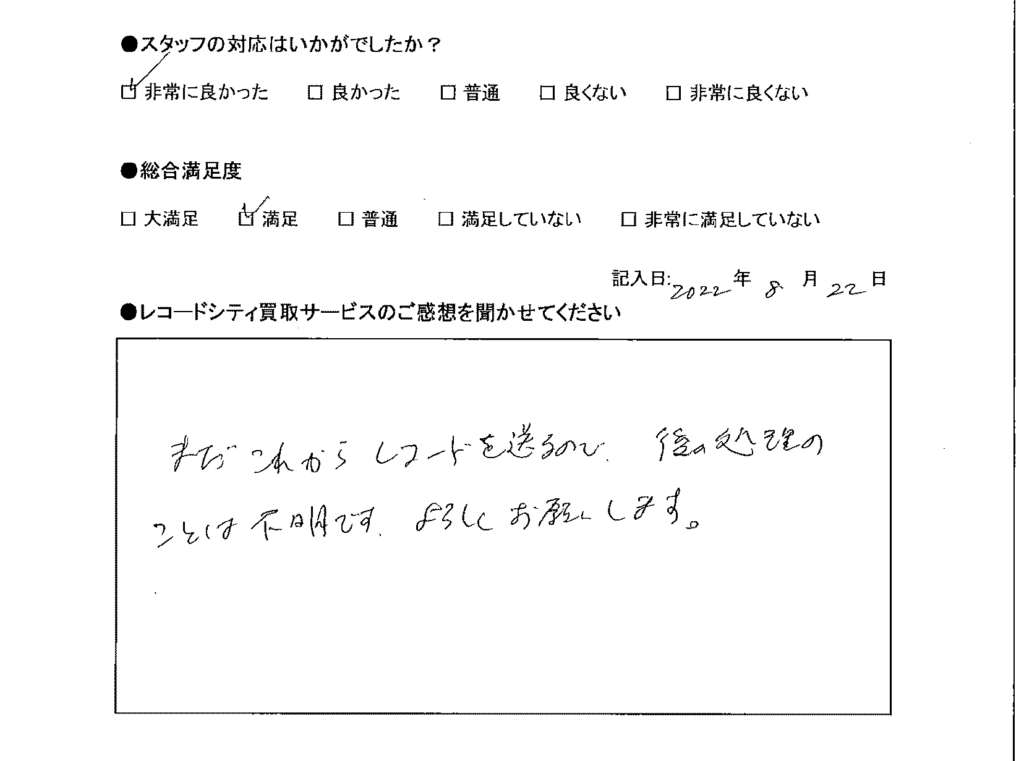 ●スタッフの対応はいかがでしたか？
☑ 非常に良かった □ 良かった □ 普通 □ 良くない □ 非常に良くない
●総合満足度
□ 大満足 ☑ 満足 □ 普通 □ 満足していない □ 非常に満足していない
記入日:2022年 8 月 22 日
●レコードシティ買取サービスのご感想を聞かせてください
まだこれからレコードを送るので、後の処理の
ことは不明です。よろしくお願いします。